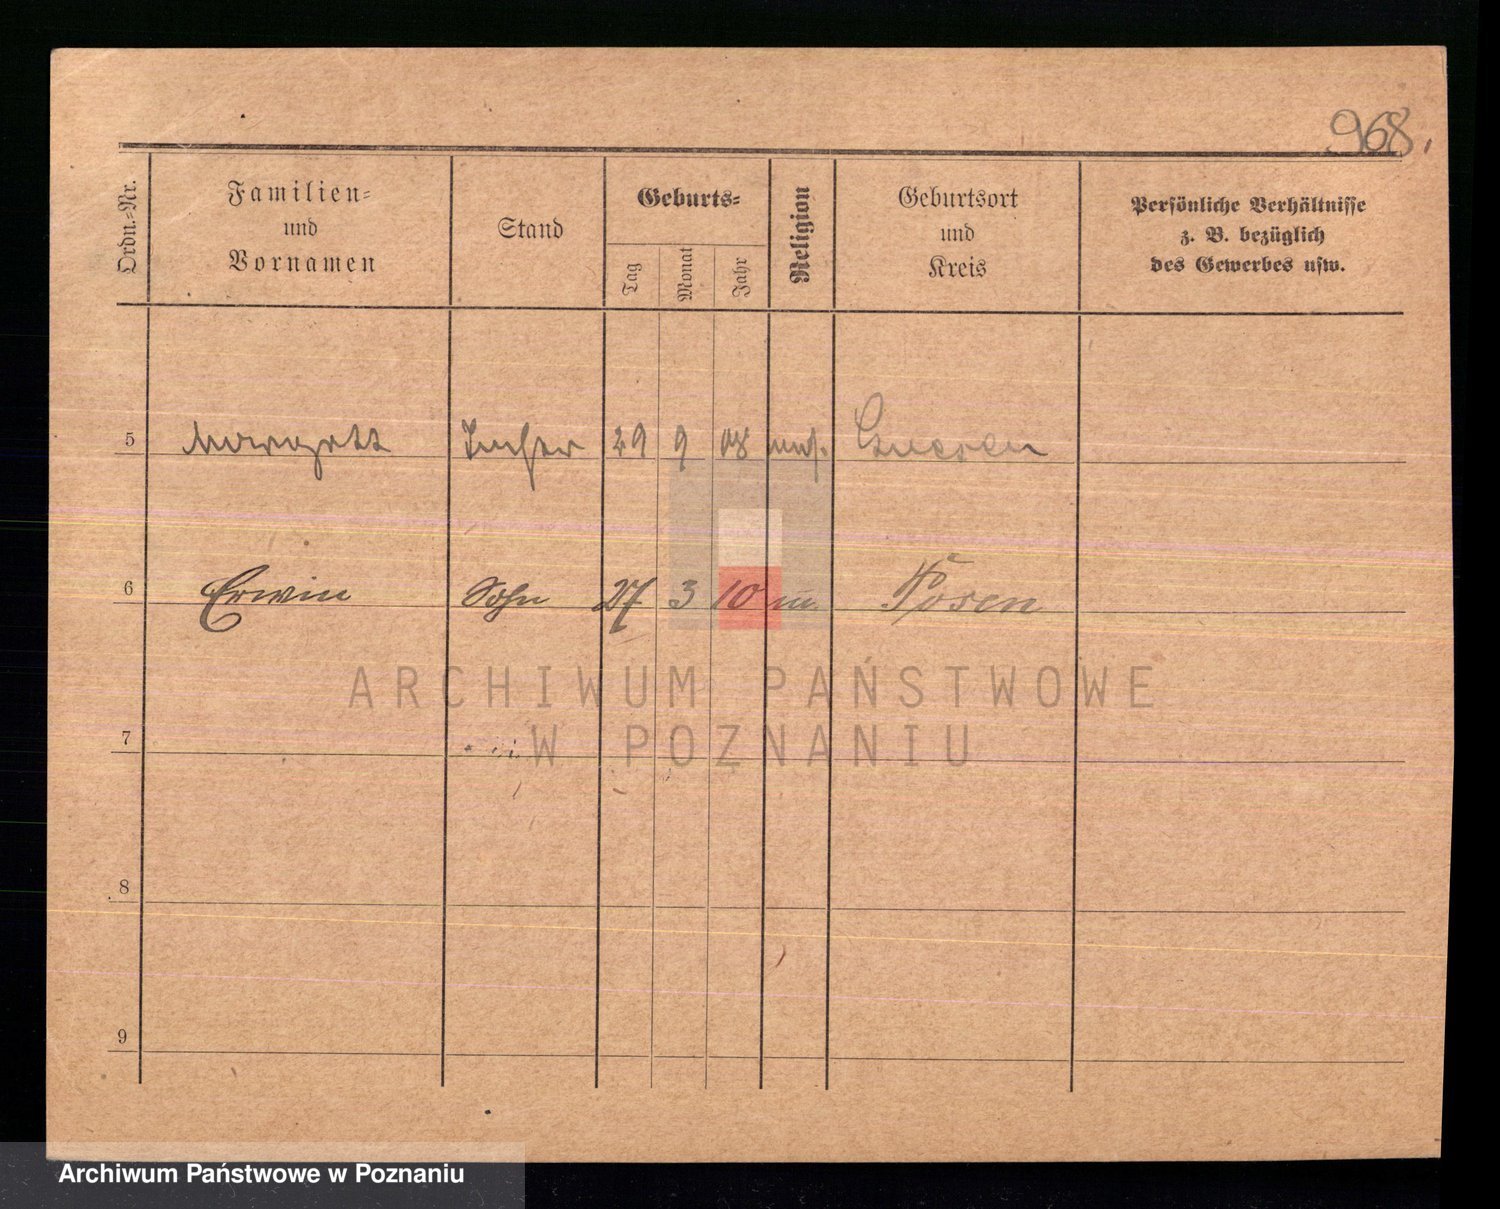 968.
Ordn.-Nr.
Familien-
und
Vornamen
Stand
Geburts-
Tag
Monat
Jahr
Religion
Geburtsort
und
Kreis
Persönliche Verhältnisse
z. B. bezüglich
des Gewerbes usw.
5 Tochter 29 9 08 Gnesen
6 Erwin Sohn 27 3 10 m Posen
7
8
9
ARCHIWUM PAŃSTWOWE
W POZNANIU
Archiwum Państwowe w Poznaniu